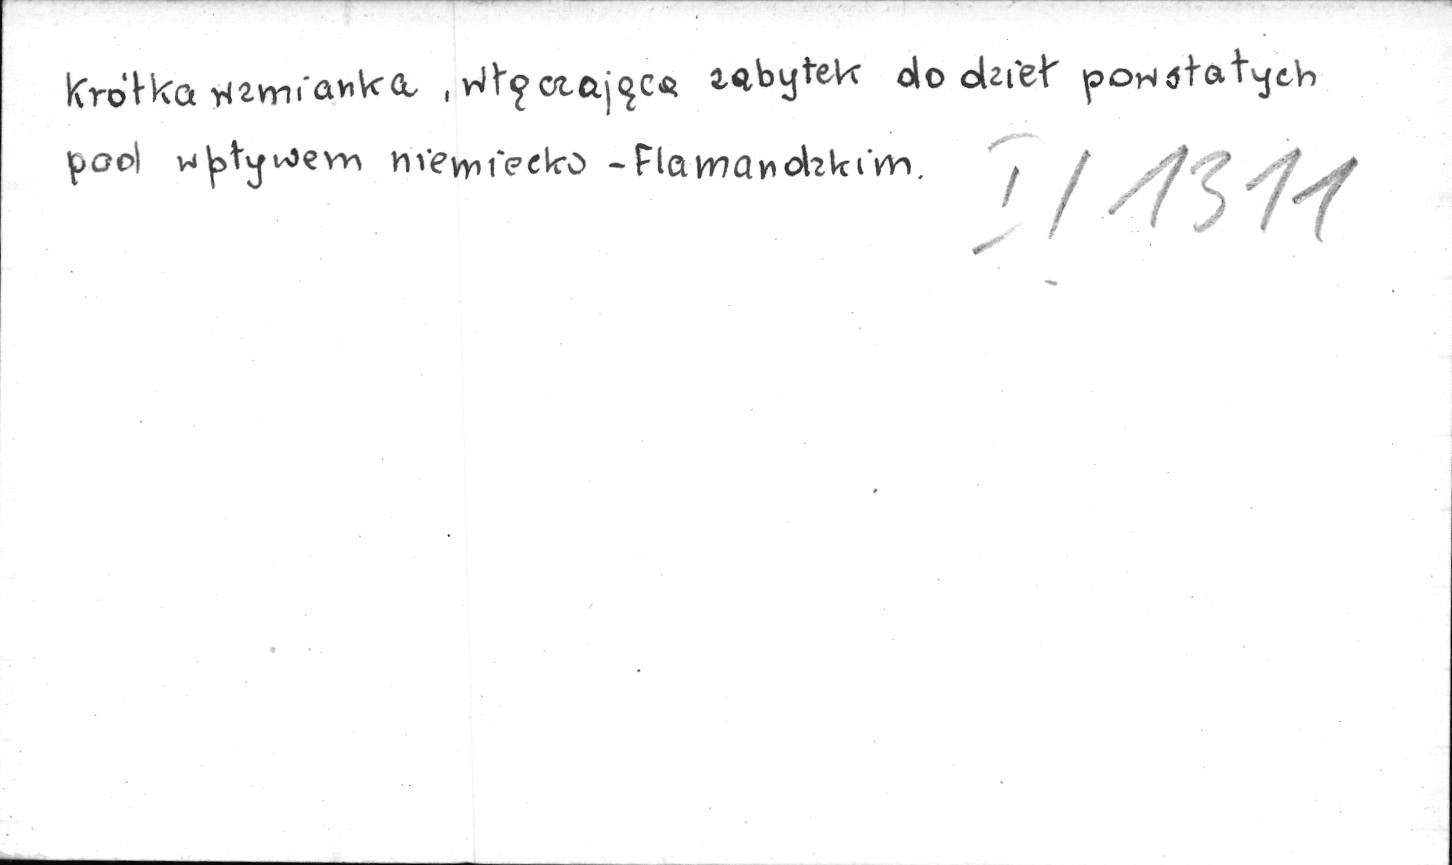 Krótka wzmianka, włączająca zabytek do dzieł powstałych
pod wpływem niemiecko-Flamandzkim.
I/1311